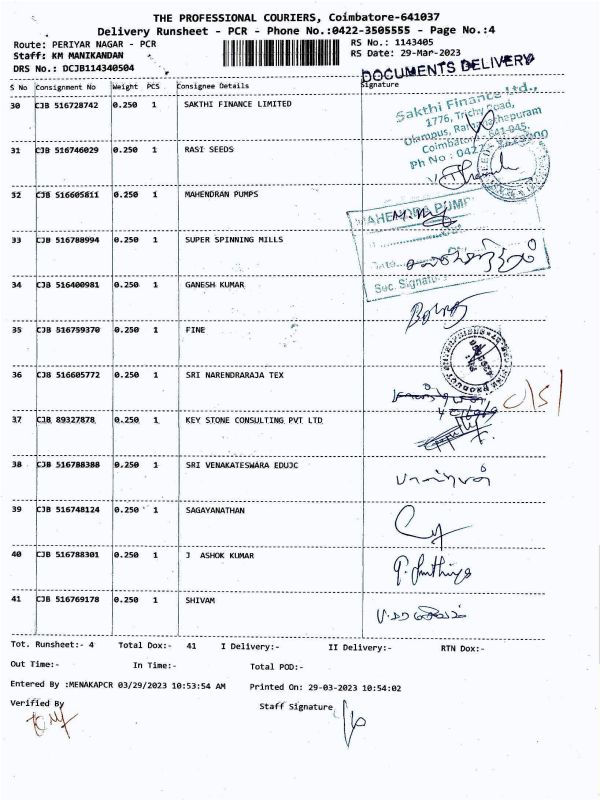 THE PROFESSIONAL COURIERS, Coimbatore-641037
Delivery Runsheet - PCR - Phone No.:0422-3505555 - Page No.:4
Route: PERIYAR NAGAR - PCR RS No.: 1143405
Staff: KM MANIKANDAN RS Date: 29-Mar-2023
DRS No.: DCJB114340504 DOCUMENTS DELIVERY
S No Consignment No Weight PCS Consignee Details Signature
30 CJB 516728742 0.250 1 SAKTHI FINANCE LIMITED
Sakthi Finance Ltd.,
1776, Trichy Road,
Coimbatore-641 045.
31 CJB 516746029 0.250 1 RASI SEEDS
32 CJB 516605811 0.250 1 MAHENDRAN PUMPS
MAHENDRA PUMP
33 CJB 516788994 0.250 1 SUPER SPINNING MILLS
Date
34 CJB 516400981 0.250 1 GANESH KUMAR
Sec. Signature
35 CJB 516759370 0.250 1 FINE
36 CJB 516605772 0.250 1 SRI NARENDRARAJA TEX
37 CJB 89327878 0.250 1 KEY STONE CONSULTING PVT LTD
38 CJB 516788388 0.250 1 SRI VENAKATESWARA EDUJC
39 CJB 516748124 0.250 1 SAGAYANATHAN
40 CJB 516788301 0.250 1 J ASHOK KUMAR
41 CJB 516769178 0.250 1 SHIVAM
Tot. Runsheet:- 4 Total Dox:- 41 I Delivery:- II Delivery:- RTN Dox:-
Out Time:- In Time:- Total POD:-
Entered By :MENAKAPCR 03/29/2023 10:53:54 AM Printed On: 29-03-2023 10:54:02
Verified By Staff Signature